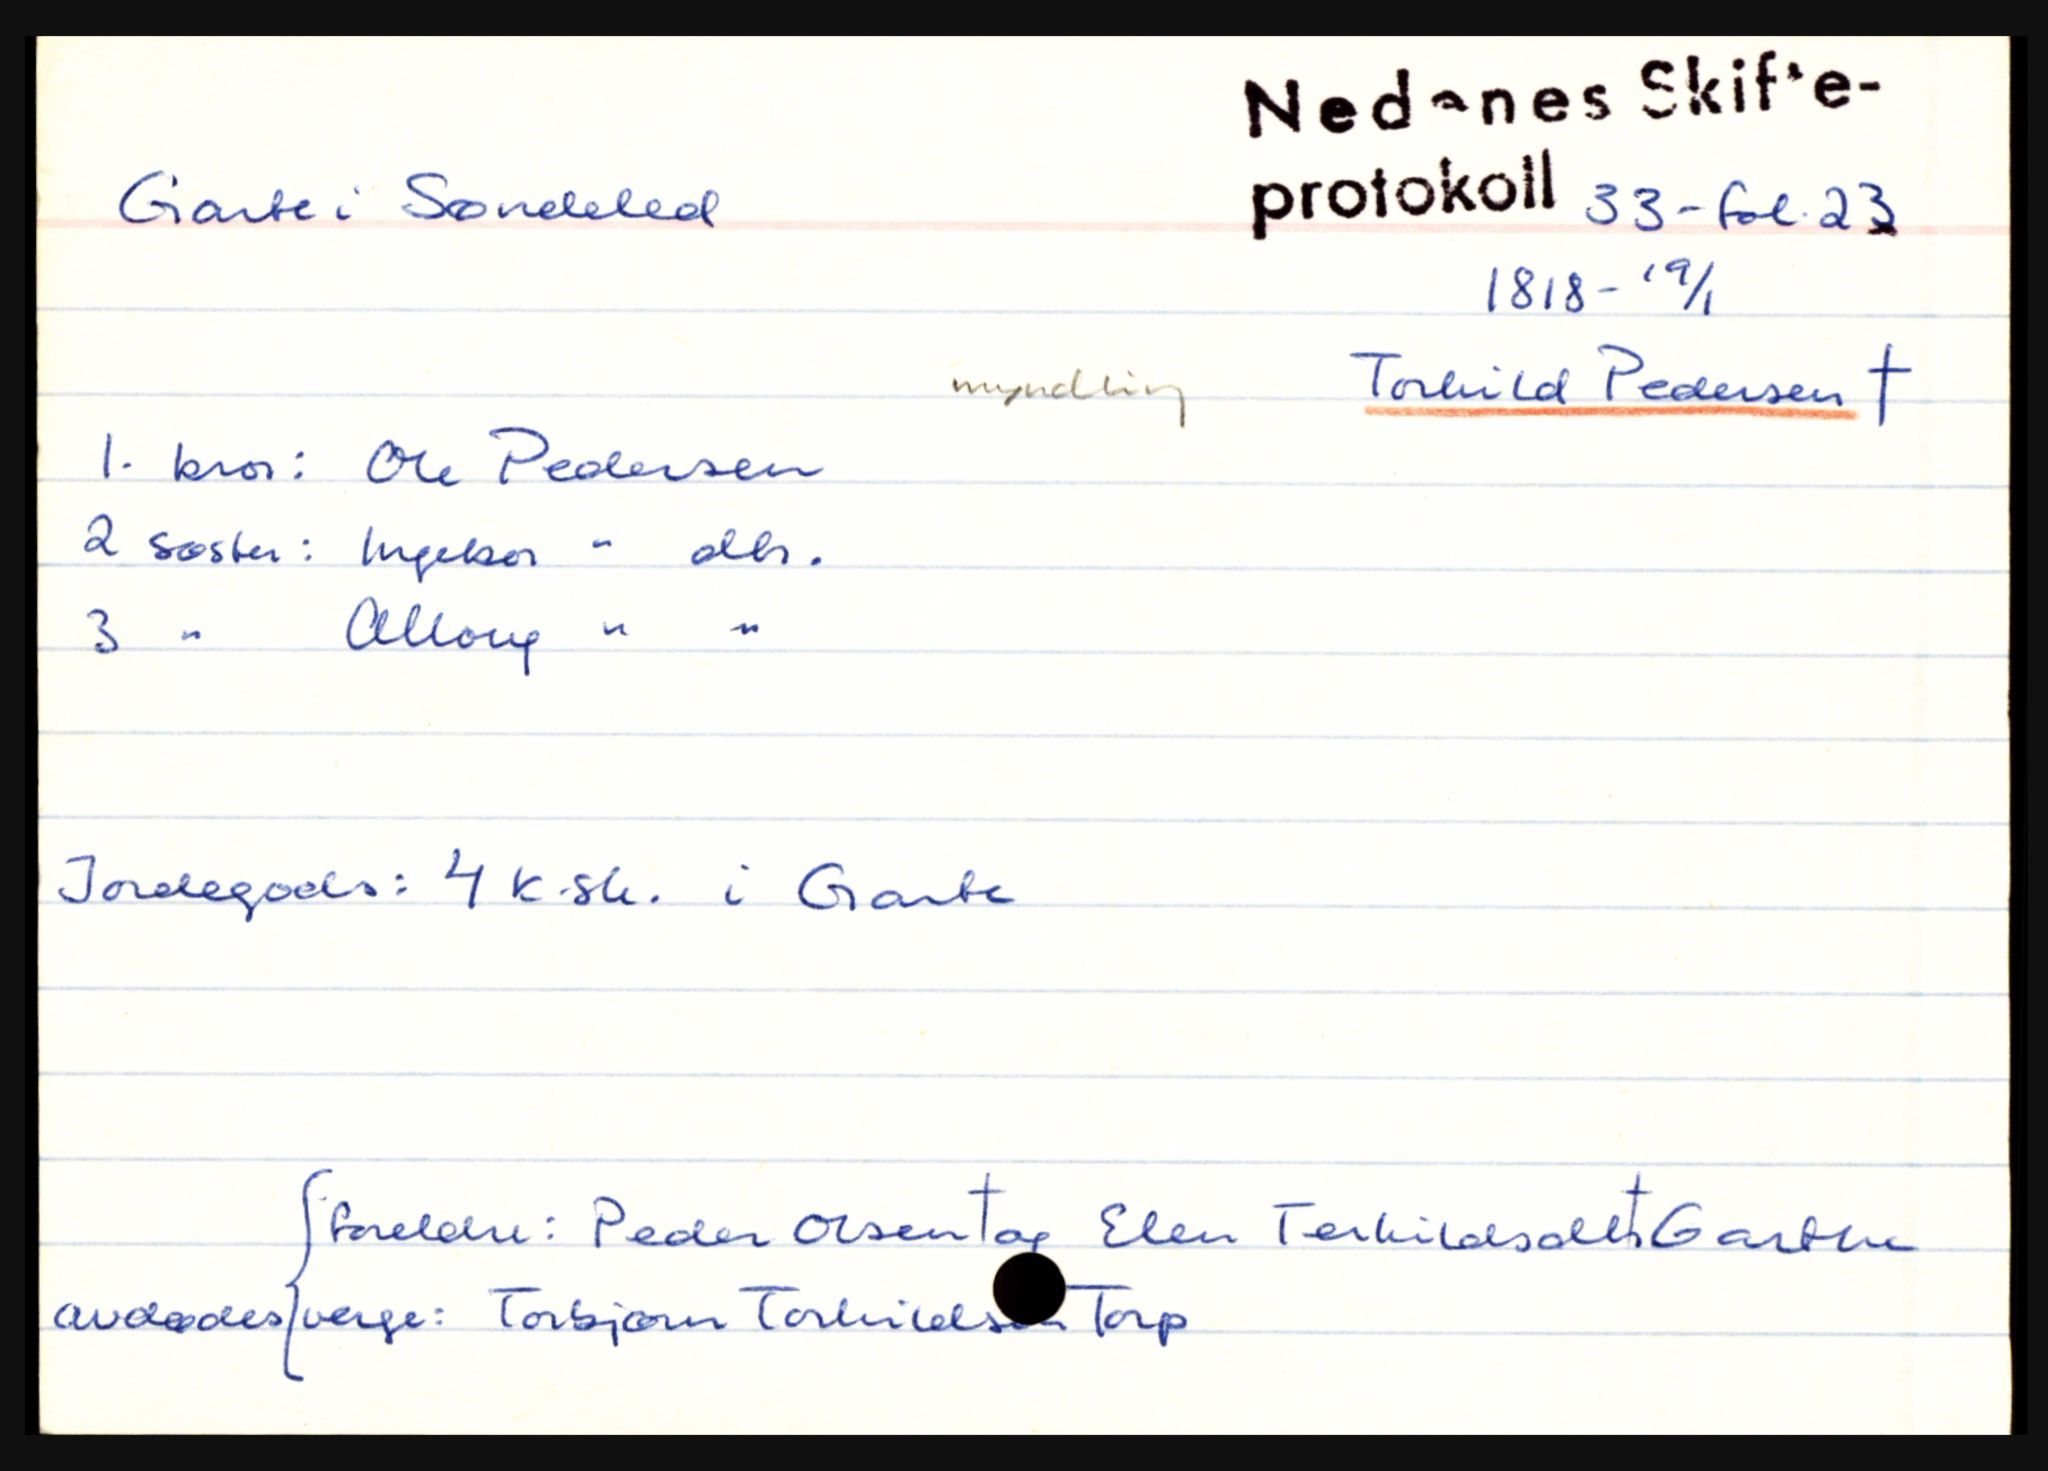 Nedenes Skifte-
protokoll 33-fol. 23
Garte i Søndeled
1818-19/1
myndling Torkild Pedersen †
1. bror: Ole Pedersen
2 søster: Ingebor " dtr.
3 " Alloug " "
Jordegods: 4 k.sk. i Garte
foreldre: Peder Olsen † og Elen Terkildsdtr † Garthe
avdødes verge: Torbjørn Torkildsen Torp